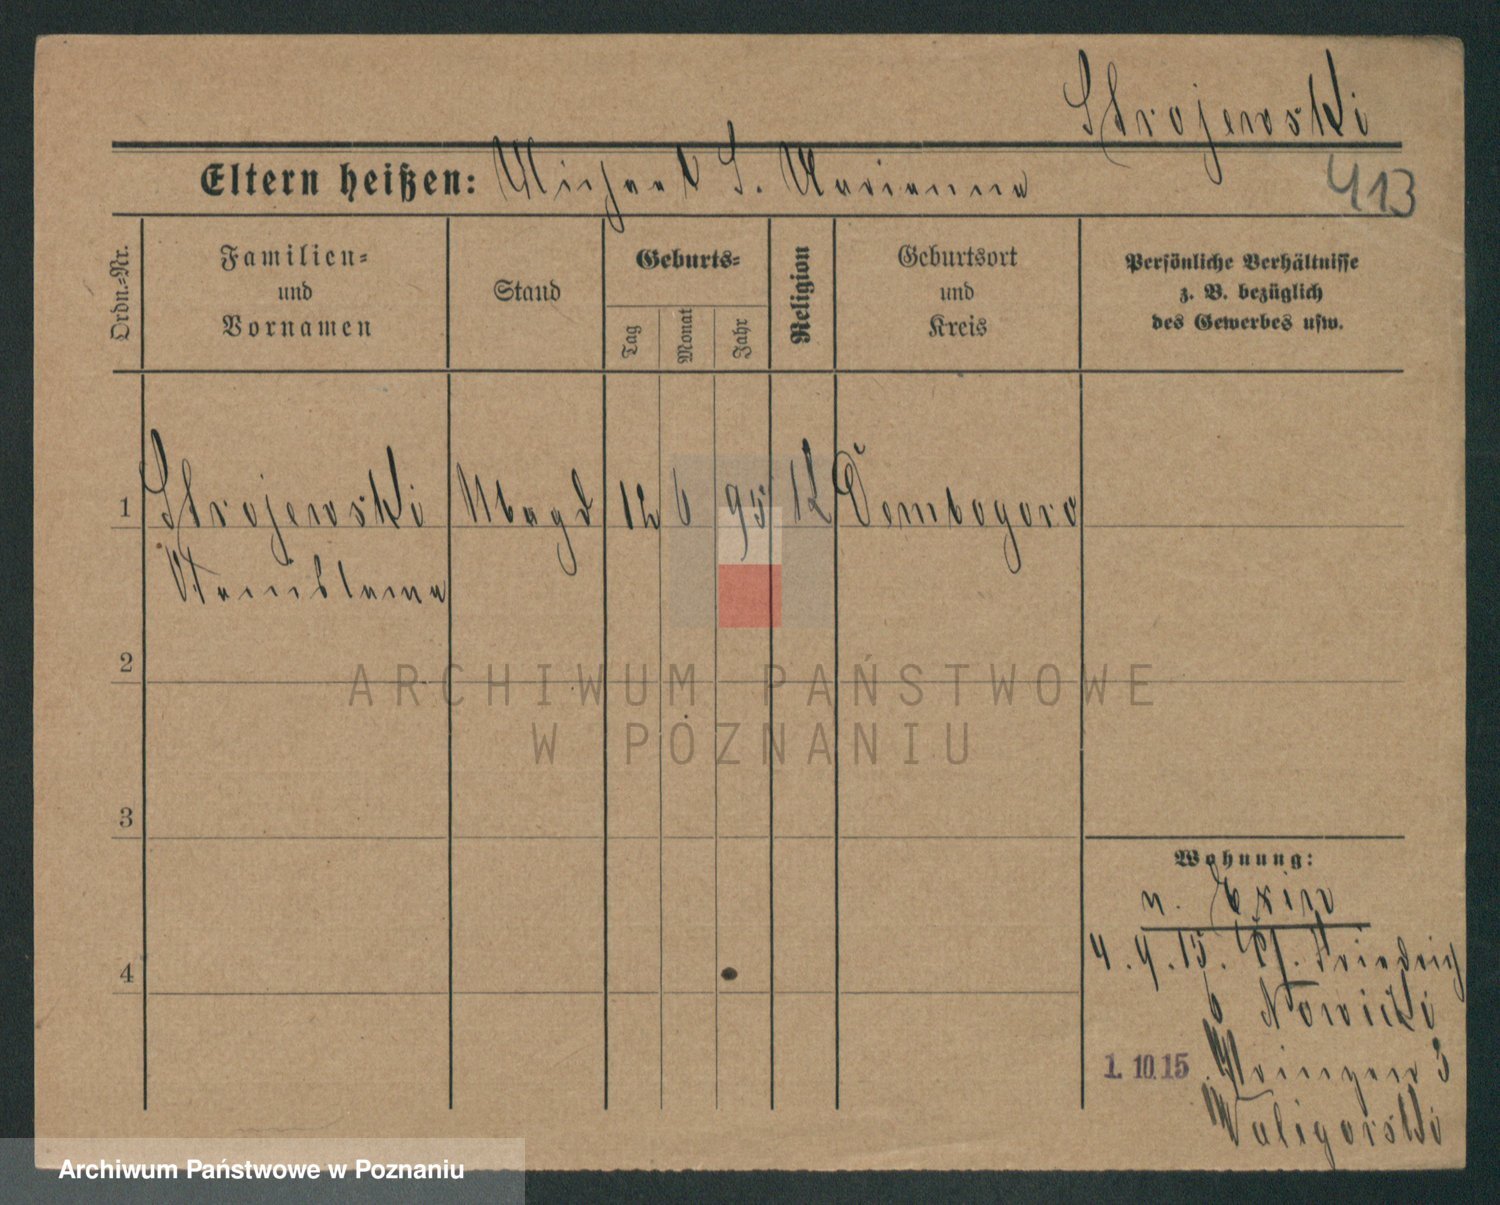 Strojewski
413
Eltern heißen: Michael S. Marianna
Ordn.-Nr.
Familien-
und
Vornamen
Stand
Geburts-
Tag
Monat
Jahr
Religion
Geburtsort
und
Kreis
Persönliche Verhältnisse
z. B. bezüglich
des Gewerbes usw.
1 Strojewski Magd 12 6 95 K Dembogoro
Stanislawa
2
3
4
Wohnung:
n. Exin
4.9.15. Friedrich
6 Nowicki
1. 10. 15 3
Waligorski
ARCHIWUM PAŃSTWOWE
W POZNANIU
Archiwum Państwowe w Poznaniu